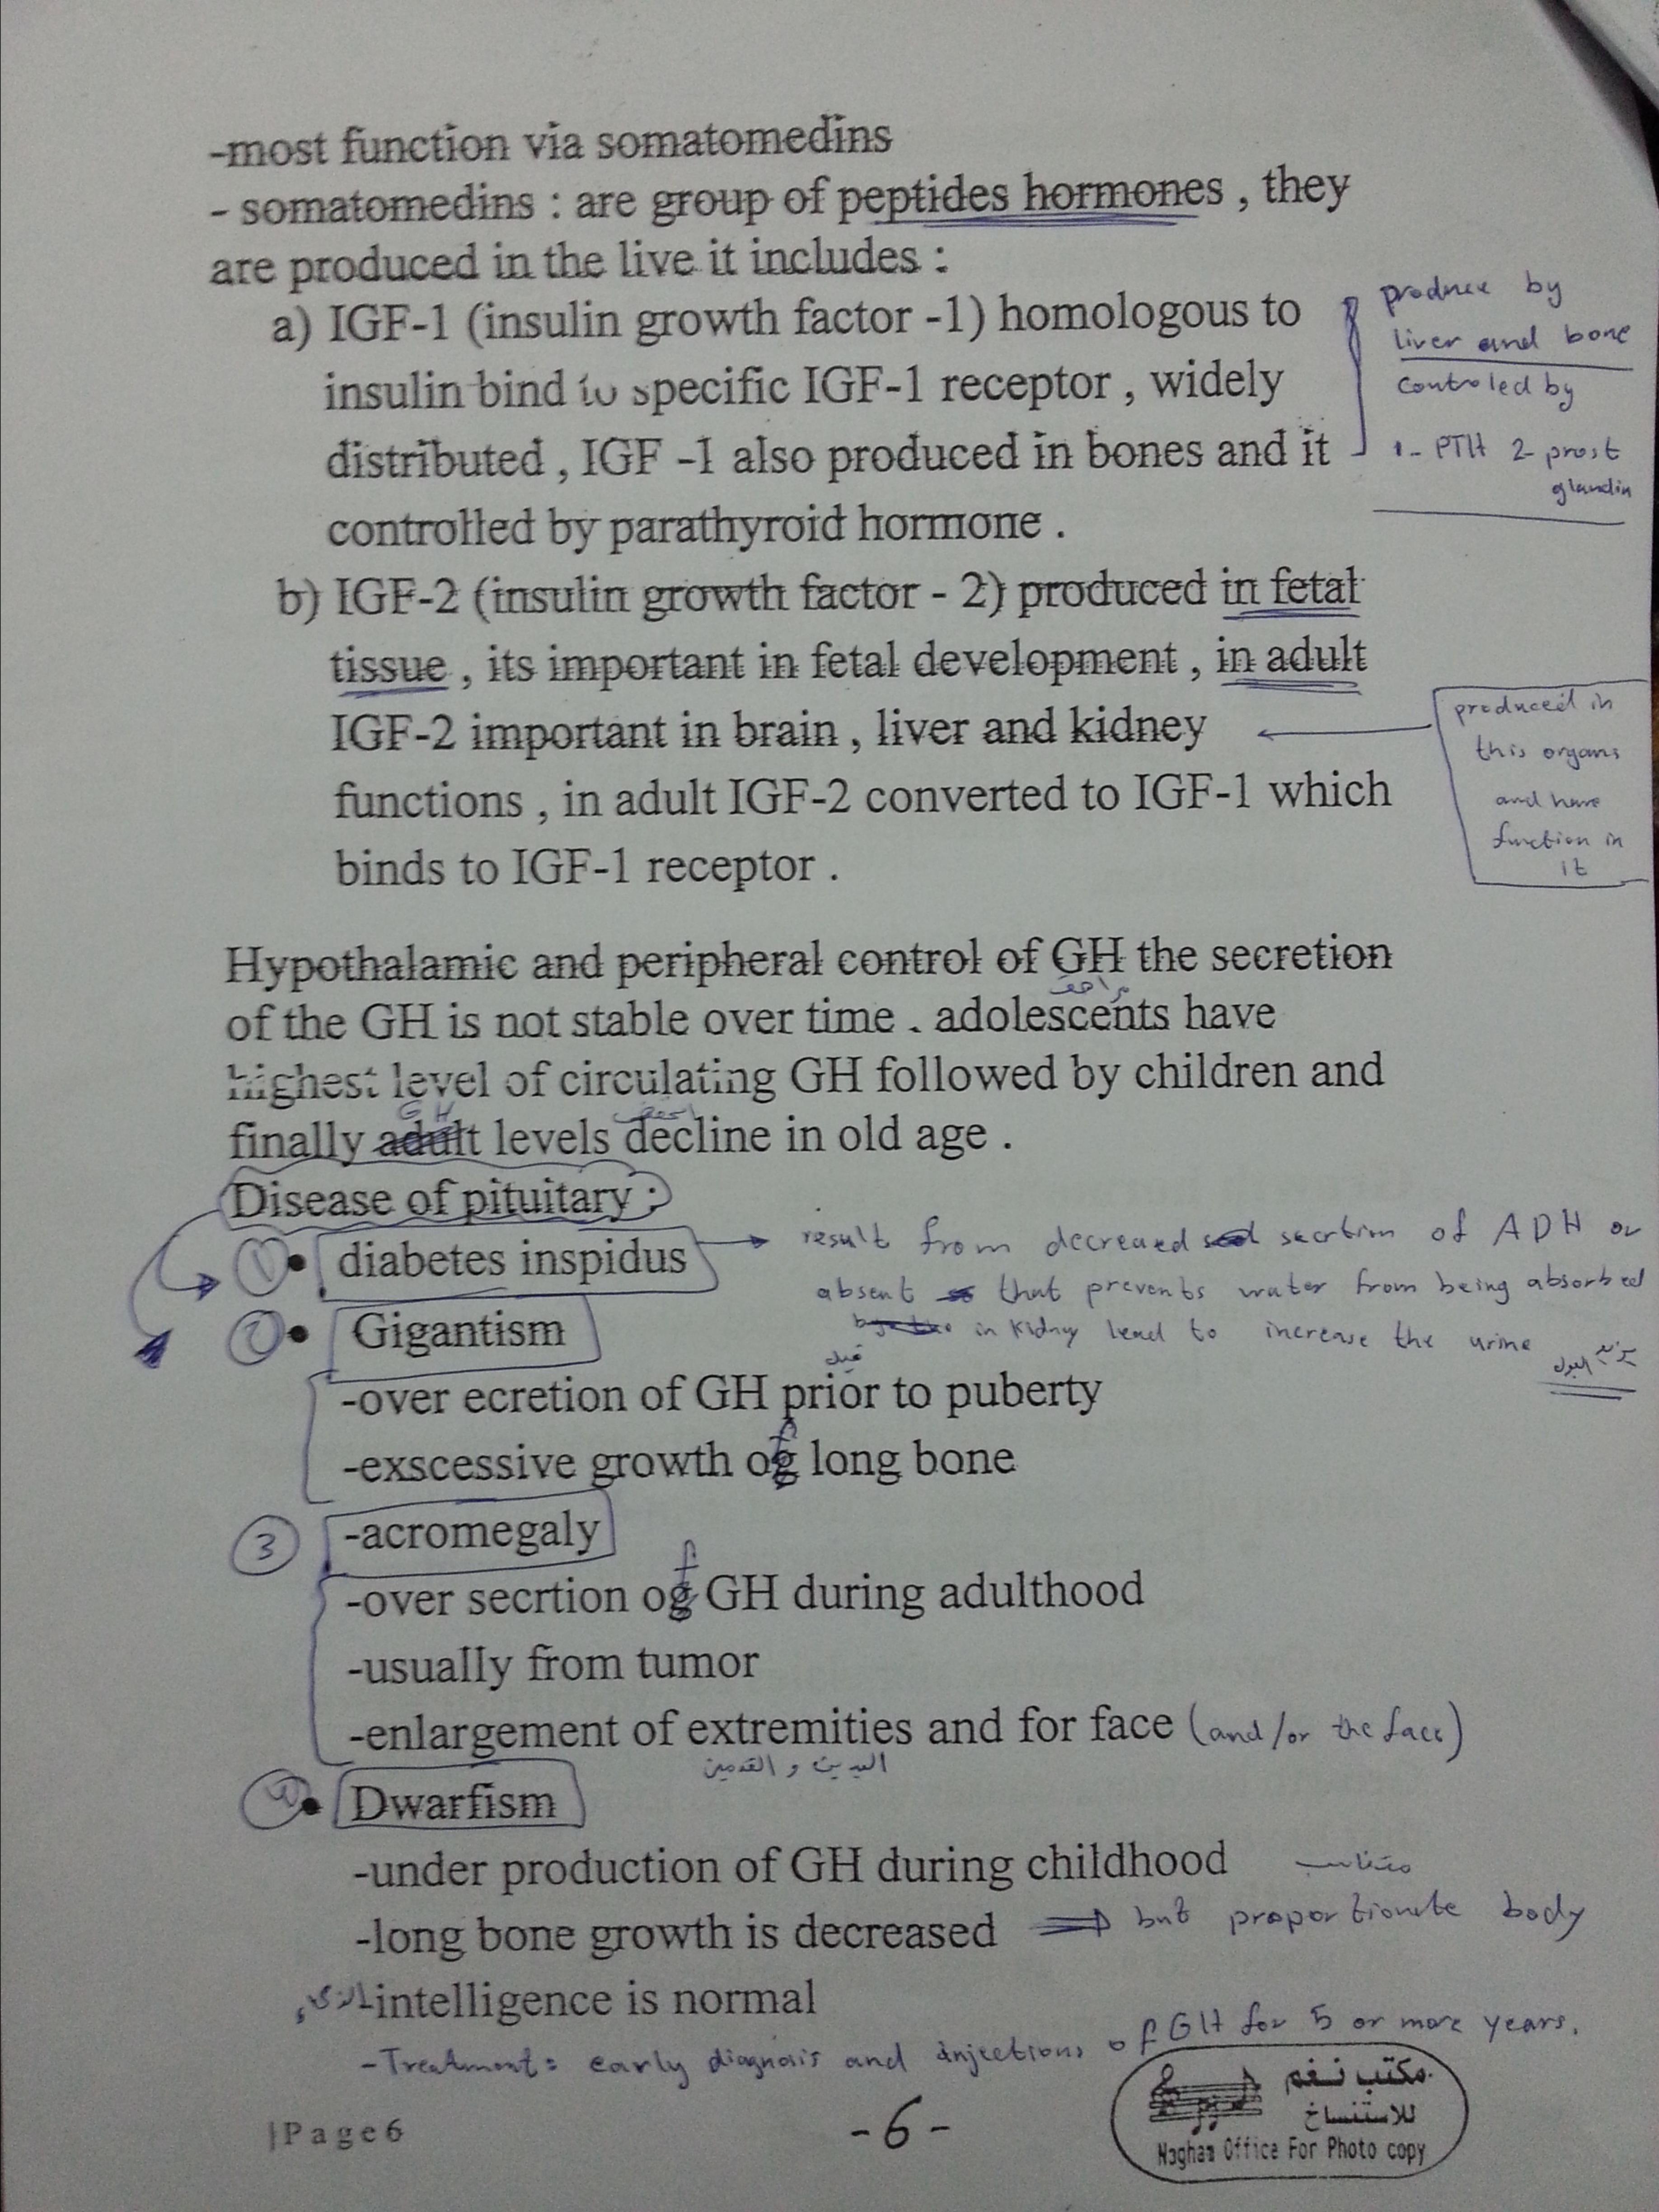 -most function via somatomedins
- somatomedins : are group of peptides hormones , they
are produced in the live it includes :
a) IGF-1 (insulin growth factor -1) homologous to
insulin bind to specific IGF-1 receptor , widely
distributed , IGF -1 also produced in bones and it
controlled by parathyroid hormone .
produce by
liver and bone
controled by
1- PTH 2- prost
glandin
b) IGF-2 (insulin growth factor - 2) produced in fetal
tissue , its important in fetal development , in adult
IGF-2 important in brain , liver and kidney
functions , in adult IGF-2 converted to IGF-1 which
binds to IGF-1 receptor .
produced in
this organs
and have
function in
it
Hypothalamic and peripheral control of GH the secretion
of the GH is not stable over time . adolescents have
highest level of circulating GH followed by children and
GH
finally adult levels decline in old age .
Disease of pituitary :
1 • diabetes inspidus
result from decreased secrtion of ADH or
absent that prevents water from being absorbed
in kidny lead to increase the urine
2 • Gigantism
قبل
-over ecretion of GH prior to puberty
-exscessive growth of long bone
3 -acromegaly
-over secrtion of GH during adulthood
-usually from tumor
-enlargement of extremities and for face (and/or the face)
اليدين و القدمين
4 • Dwarfism
-under production of GH during childhood
متناسب
-long bone growth is decreased ⇒ but proportionate body
-intelligence is normal
-Treatment: early diagnosis and injections of GH for 5 or more years.
|Page6
-6-
مكتب نغم
للاستنساخ
Nagham Office For Photo copy